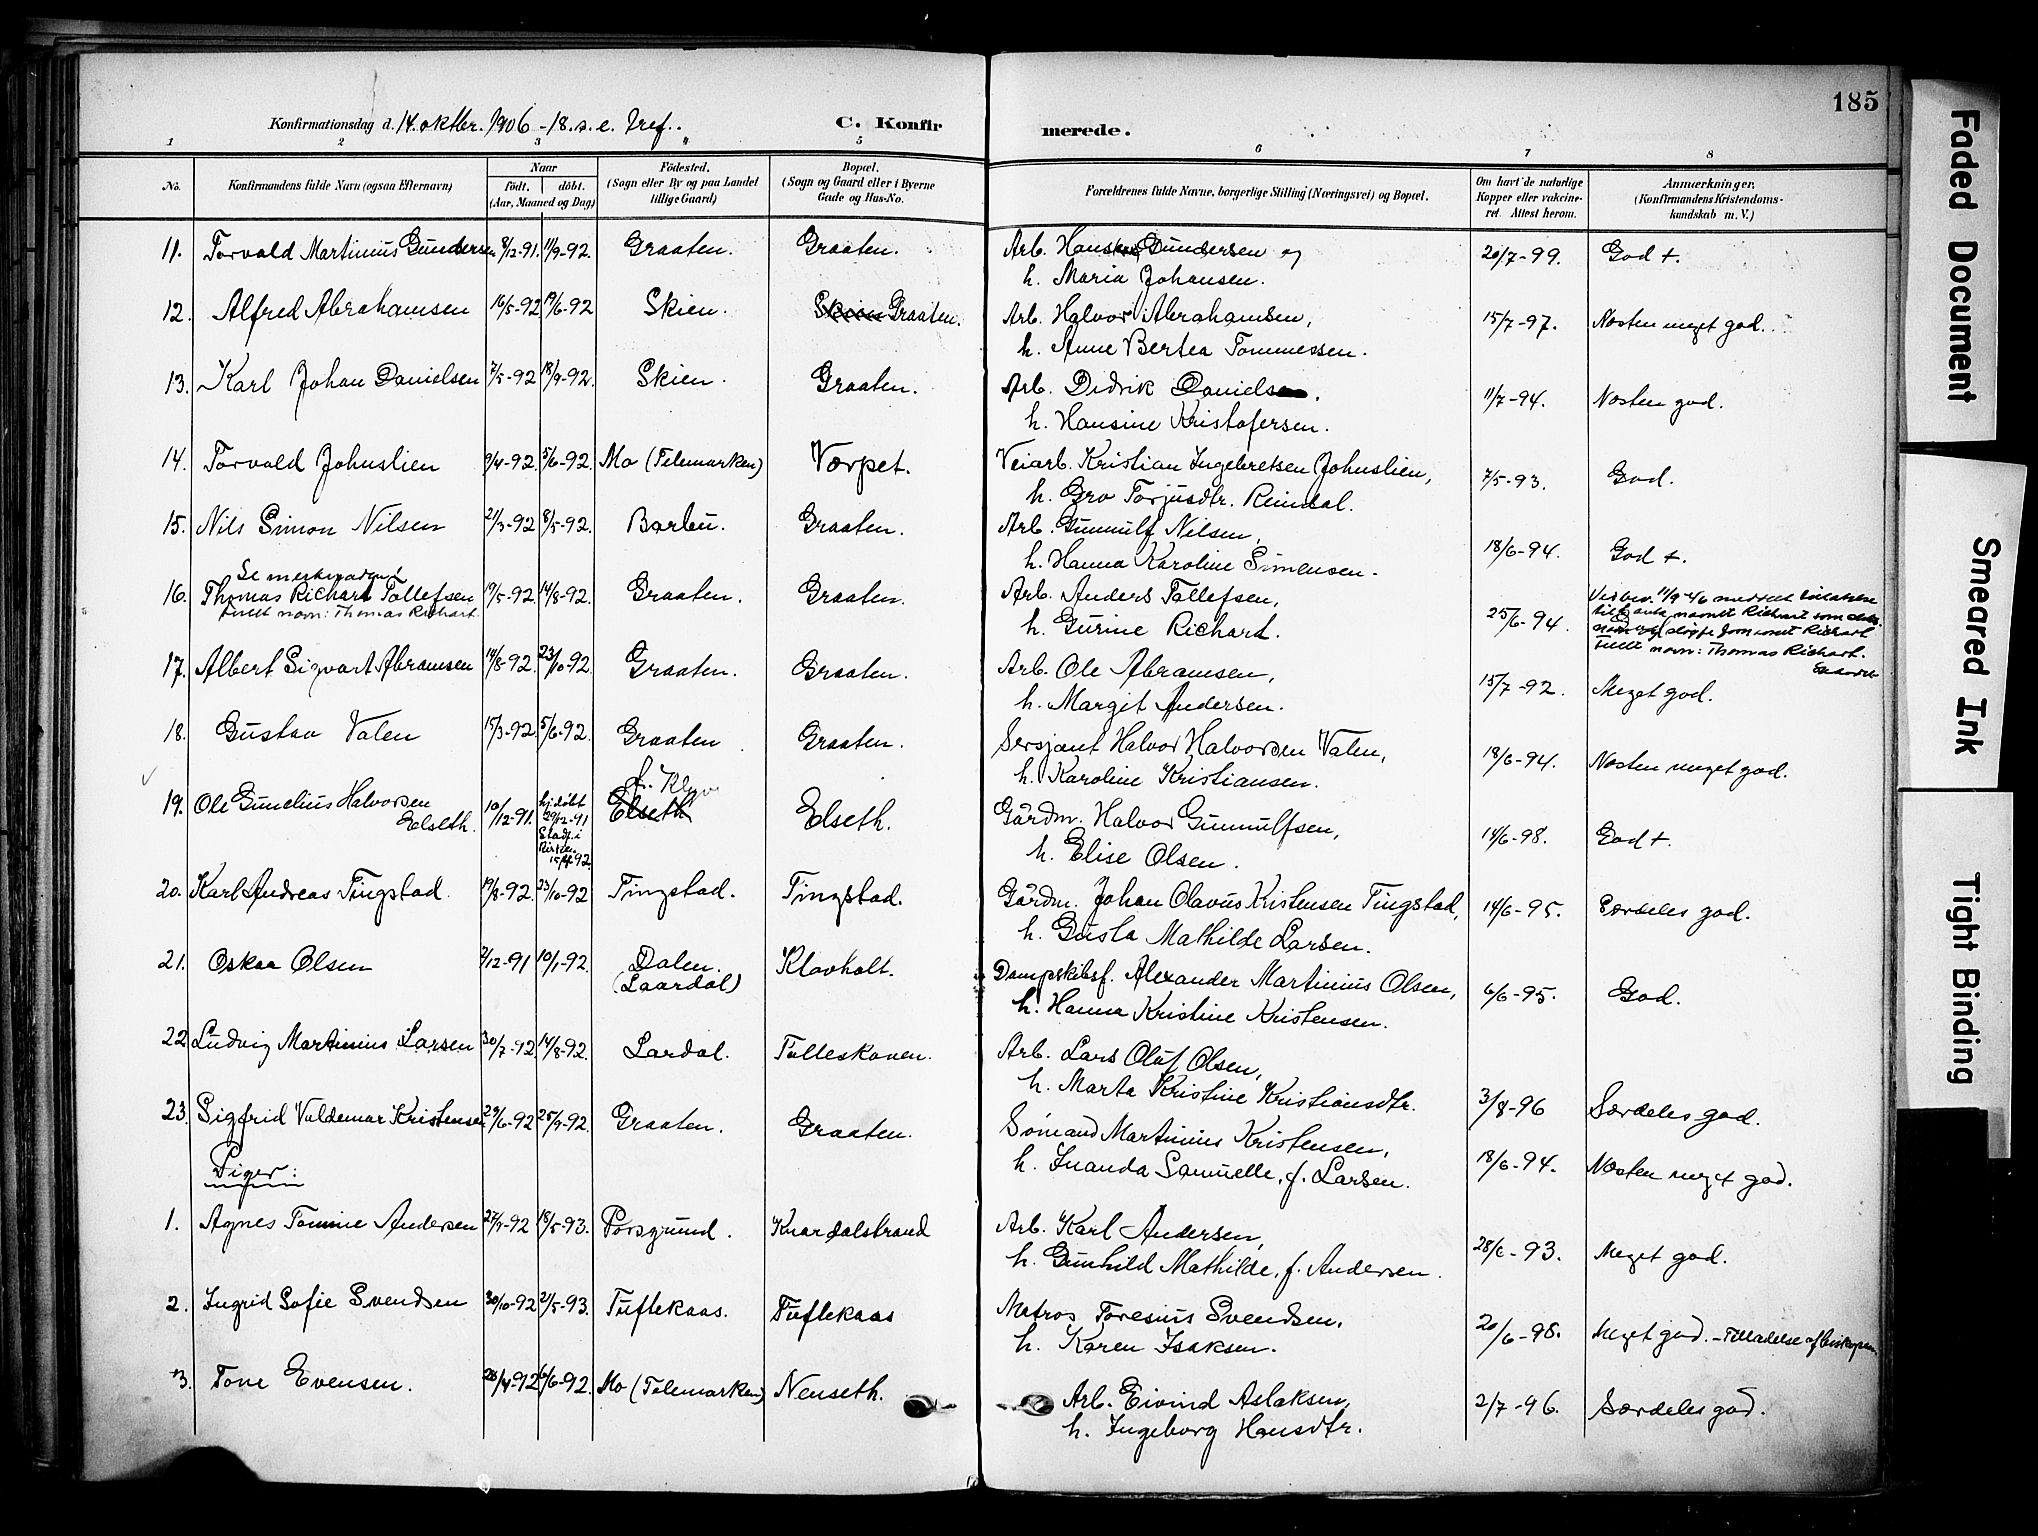 185
Konfirmationsdag d. 14. oktbr. 1906 - 18. s. e. Tref.
C. Konfirmerede.
1 2 3 4 5 6 7 8
No.
Konfirmandens fulde Navn (ogsaa Efternavn)
Naar
födt. döbt.
(Aar, Maaned og Dag)
Födested.
(Sogn eller By og paa Landet
tillige Gaard)
Bopæl.
(Sogn og Gaard eller i Byerne
Gade og Hus-No.
Forældrenes fulde Navne, borgerlige Stilling (Næringsvei) og Bopæl.
Om havt de naturlige
Kopper eller vakcine-
ret. Attest herom.
Anmærkninger,
(Konfirmandens Kristendoms-
kundskab m. V.)
11. Torvald Martinius Gundersen 8/12-91. 11/9-92. Graaten. Graaten. Arb. Hans Gundersen og
h. Maria Johansen. 20/7-99. God +.
12. Alfred Abrahamsen 16/5-92 19/6-92 Skien. Skien Graaten. Arb. Halvor Abrahamsen,
h. Anne Bertea Tommessen. 15/7-97. Næsten meget god.
13. Karl Johan Danielsen 7/5-92 18/9-92. Skien. Graaten. Arb. Didrik Daniels
h. Hansine Kristofersen. 11/7-94. Næsten god.
14. Torvald Johnslien 9/4-92. 5/6-92. Mo (Telemarken) Værpet. Veiarb. Kristian Ingebretsen Johnslien,
h. Gro Torjusdtr. Reindal. 7/5-93. God.
15. Nils Simon Nilsen 21/3-92 8/5-92. Barbu. Graaten. Arb. Gunnulf Nilsen,
h. Hanna Karoline Simensen. 18/6-94. God +.
Se merknaden!
16. Thomas Richart Tollefsen 19/5-92. 14/8-92. Graaten. Graaten. Arb. Anders Tollefsen,
Fullt navn: Thomas Richart.
h. Gurine Richart. 25/6-94.
Fullt navn: Thomas Richart.
17. Albert Sigvart Abramsen 14/8-92. 23/10-92. Graaten. Graaten. Arb. Ole Abramsen,
h. Margit Andersen. 15/7-92. Meget god.
18. Gustav Valen 15/3-92. 5/6-92. Graaten Graaten. Sersjant Halvor Halvorsen Valen,
h. Karoline Kristiansen. 18/6-94. Næsten meget god.
19. Ole Gunelius Halvorsen
Elseth. 10/12-91. hj.døbt
29/12-91
Stadf. i
Kirken
92. Elseth Elseth. Gårdm. Halvor Gunnulfsen,
h. Elise Olsen. 14/6-98. God +.
20. Karl Andreas Tingstad. 19/8-92. 23/10-92 Tingstad. Tingstad. Gårdm. Johan Olavus Kristensen Tingstad,
h. Gusta Mathilde Larsen. 14/6-95. Særdeles god.
21. Oskar Olsen 2/12-91 10/1-92. Dalen.
(Laardal) Klovholt. Dampskibsf. Alexander Martinius Olsen,
h. Hanna Kristine Kristensen. 6/6-95. God.
22 Ludvig Martinius Larsen 30/7-92 14/8-92. Lardal. Tolleskoven. Arb. Lars Oluf Olsen,
h. Marta Kristine Kristiansdtr. 3/8-96 Særdeles god.
23. Sigfrid Valdemar Kristensen 29/6-92 25/9-92 Graaten. Graaten. Sömand Martinius Kristensen,
h. Inanda Samuelle, f. Larsen. 18/6-94. Næsten meget god.
Piger:
1. Agnes Tomine Andersen 27/9-92 18/5-93. Porsgrund. Knardalstrand Arb. Karl Andersen,
h. Gunhild Mathilde, f. Andersen. 28/6-93. Meget god.
2. Ingrid Sofie Svendsen 30/10-92 2/5-93. Tuftekaas. Tuftekaas Matros Toresius Svendsen,
h. Karen Isaksen. 20/6-98. Meget god. - Tilladelse af biskopen.
3. Tone Evensen. 28/4-92 6/6-92. Mo (Telemarken) Nenseth. Arb. Eivind Aslaksen,
h. Ingeborg Hansdtr. 2/7-96. Særdeles god.
Faded Document
Smeared Ink
Tight Binding